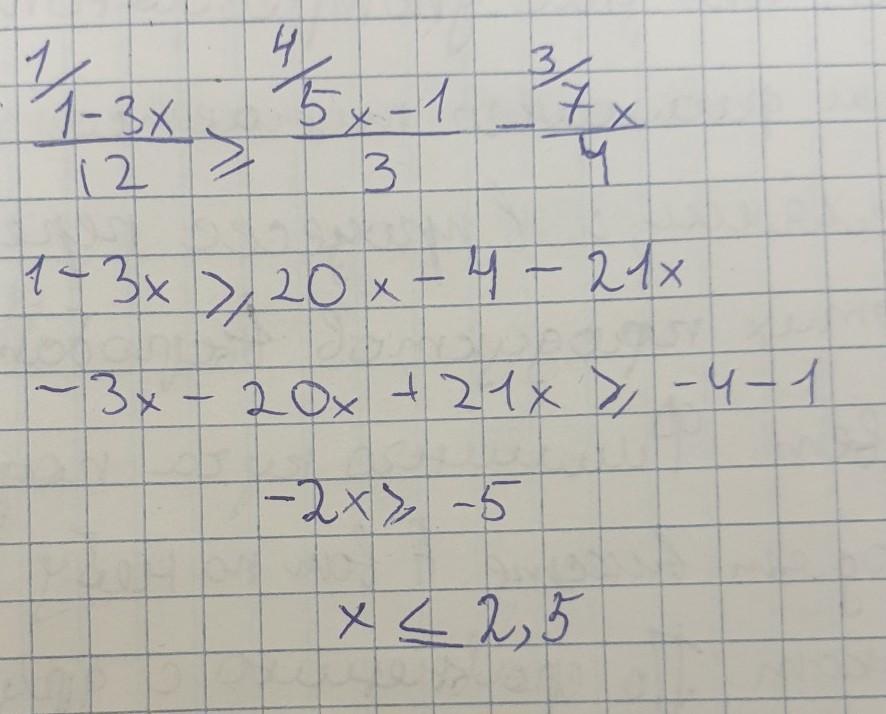 1/ 4/ 3/
(1-3x)/12 ≥ (5x-1)/3 - 7x/4
1-3x ≥ 20x-4-21x
-3x-20x+21x ≥ -4-1
-2x ≥ -5
x ≤ 2,5